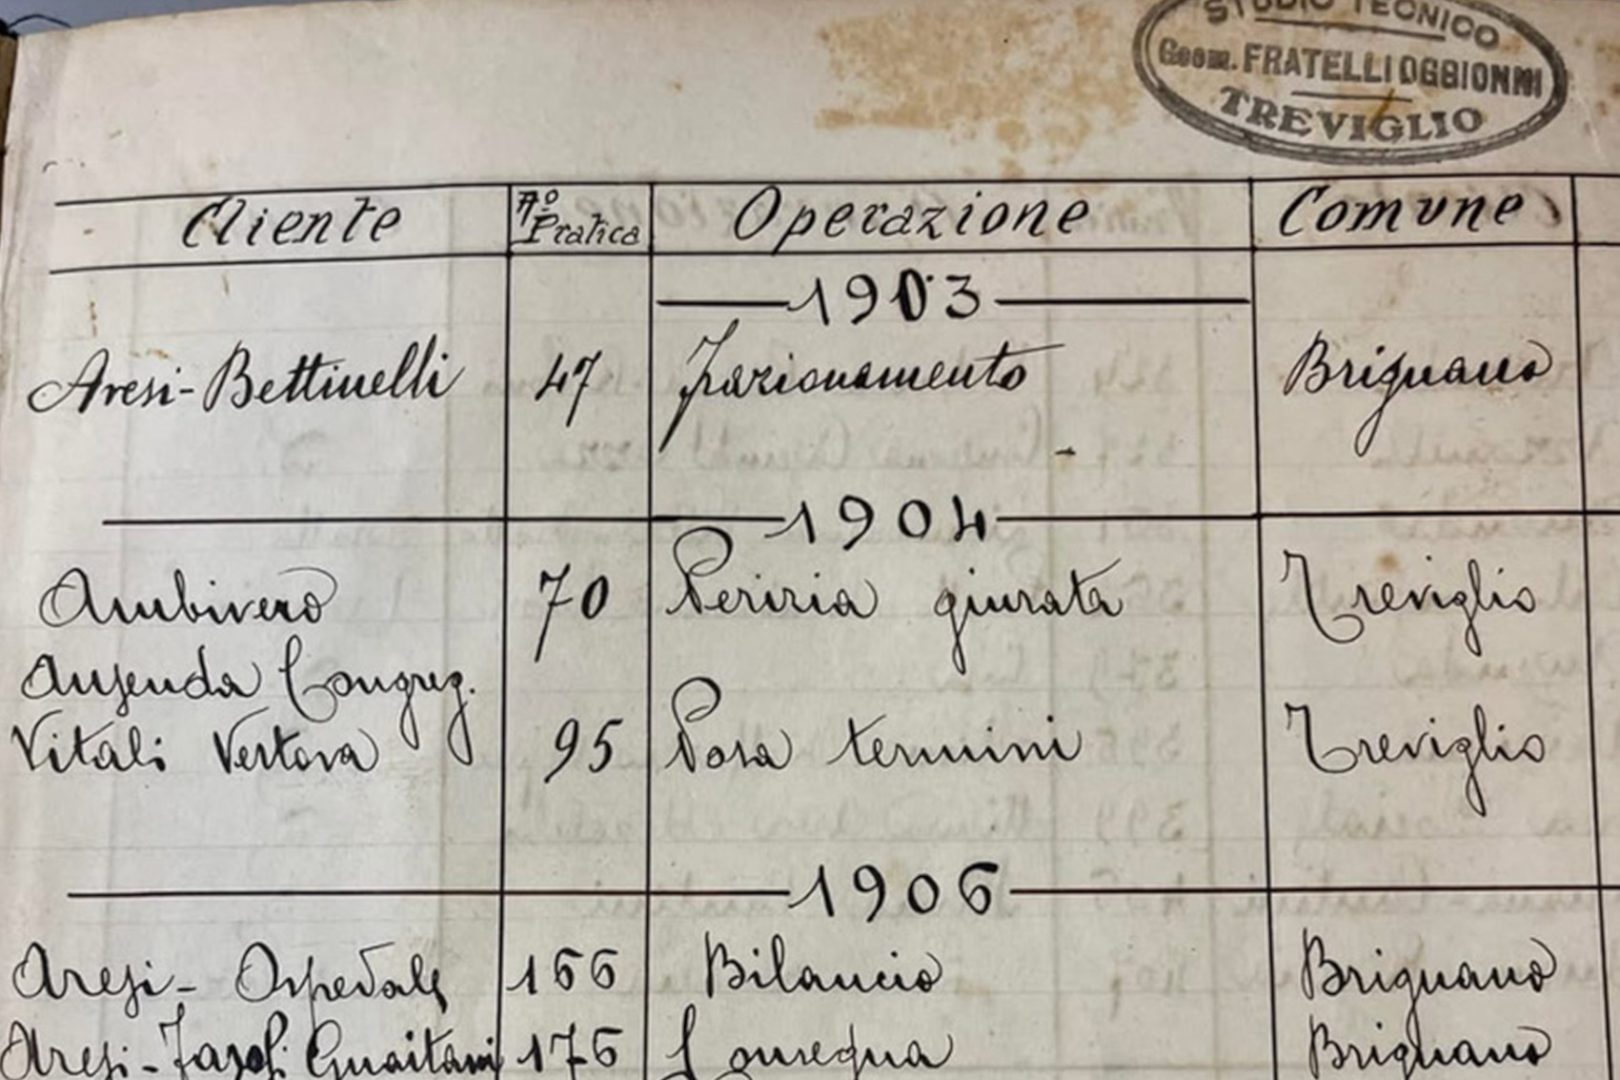 STUDIO TECNICO
Geom. FRATELLI OGGIONNI
TREVIGLIO
Cliente Nº Pratica Operazione Comune
1903
Aresi-Bettinelli 47 frazionamento Brignano
1904
Ambivero 70 Perizia giurata Treviglio
Ausenda Congreg.
Vitali Vertova 95 Posa termini Treviglio
1906
Aresi - Ospedale 166 Bilancio Brignano
Aresi - Guaitani 176 Consegna Brignano